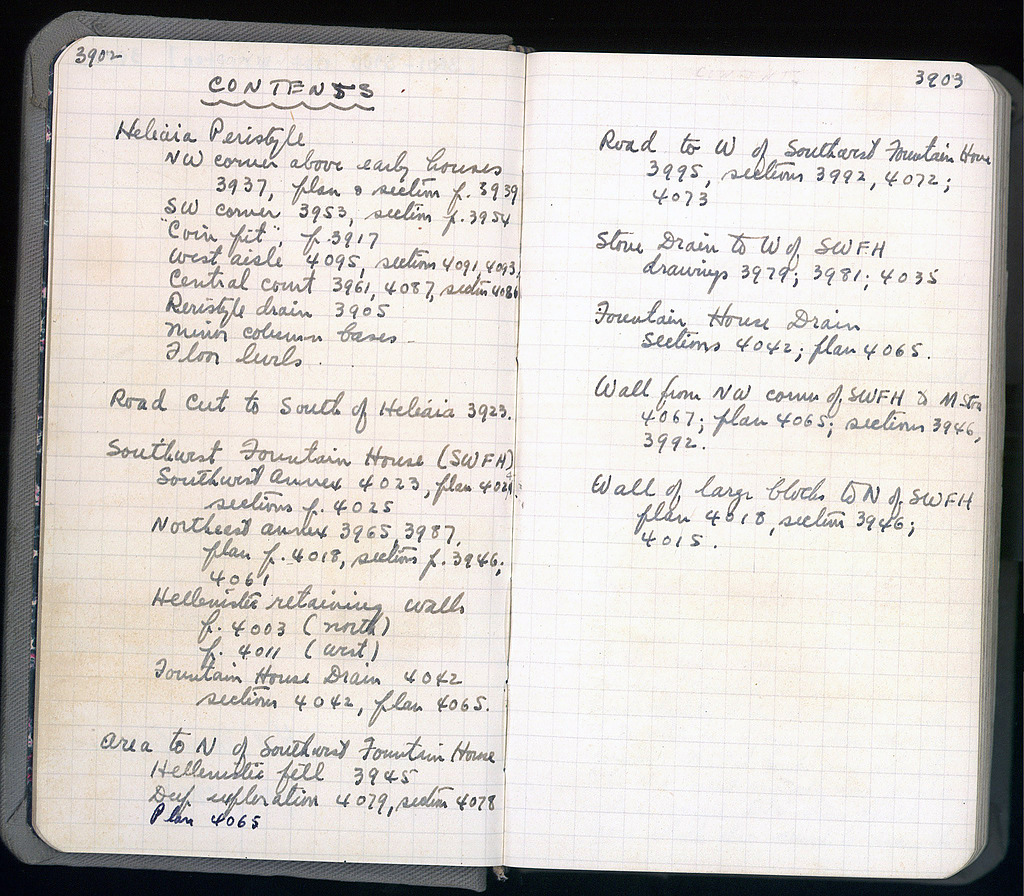 3902
CONTENTS
Heliaia Peristyle
NW corner above early houses
3937, plan & section p. 3939
SW corner 3953, section p. 3954
"Coin pit", p. 3917
West aisle 4095, sections 4091, 4093,
Central court 3961, 4087, section 4086
Peristyle drain 3905
Minor column bases
Floor levels
Road Cut to South of Heliaia 3923.
Southwest Fountain House (SWFH)
Southwest Annex 4023, plan
sections p. 4025
Northeast annex 3965, 3987,
plan p. 4018, section p. 3946;
4061
Hellenistic retaining walls
p. 4003 (north)
p. 4011 (west)
Fountain House Drain 4042
sections 4042, plan 4065.
Area to N of Southwest Fountain House
Hellenistic fill 3945
Deep exploration 4079, section 4078
Plan 4065
3903
Road to W of Southwest Fountain House
3995, sections 3992, 4072;
4073
Stone Drain to W of SWFH
drawings 3979; 3981; 4035
Fountain House Drain
Sections 4042; plan 4065.
Wall from NW corner of SWFH to M Stoa
4067; plan 4065; sections 3946,
3992.
Wall of large blocks to N of SWFH
plan 4018, section 3946;
4015.